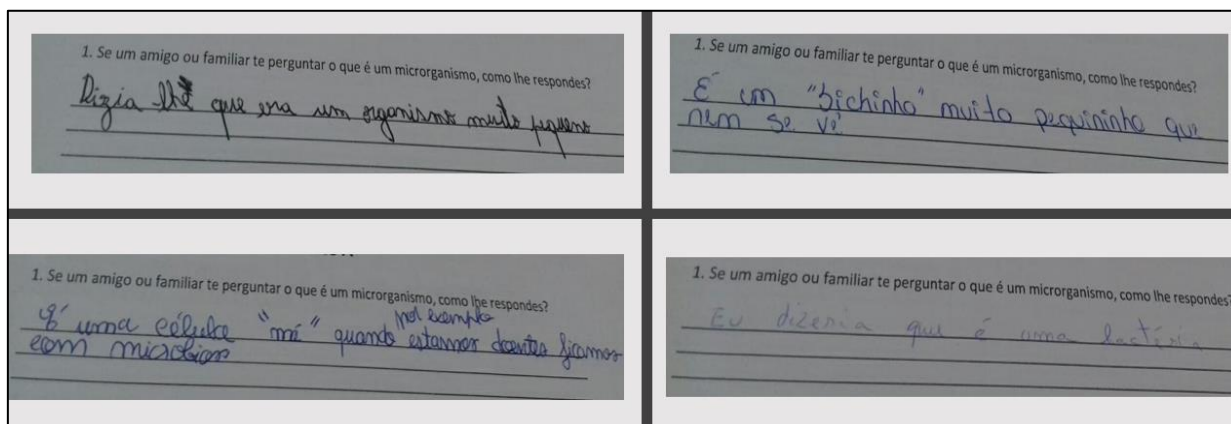 1. Se um amigo ou familiar te perguntar o que é um microrganismo, como lhe respondes?
Dizia lhe que era um organismo muito pequeno
1. Se um amigo ou familiar te perguntar o que é um microrganismo, como lhe respondes?
É um "bichinho" muito pequininho que
nem se vê
1. Se um amigo ou familiar te perguntar o que é um microrganismo, como lhe respondes?
É uma célula "má" quando por exemplo estamos doentes ficamos
com micróbios
1. Se um amigo ou familiar te perguntar o que é um microrganismo, como lhe respondes?
Eu dizeria que é uma bactéria